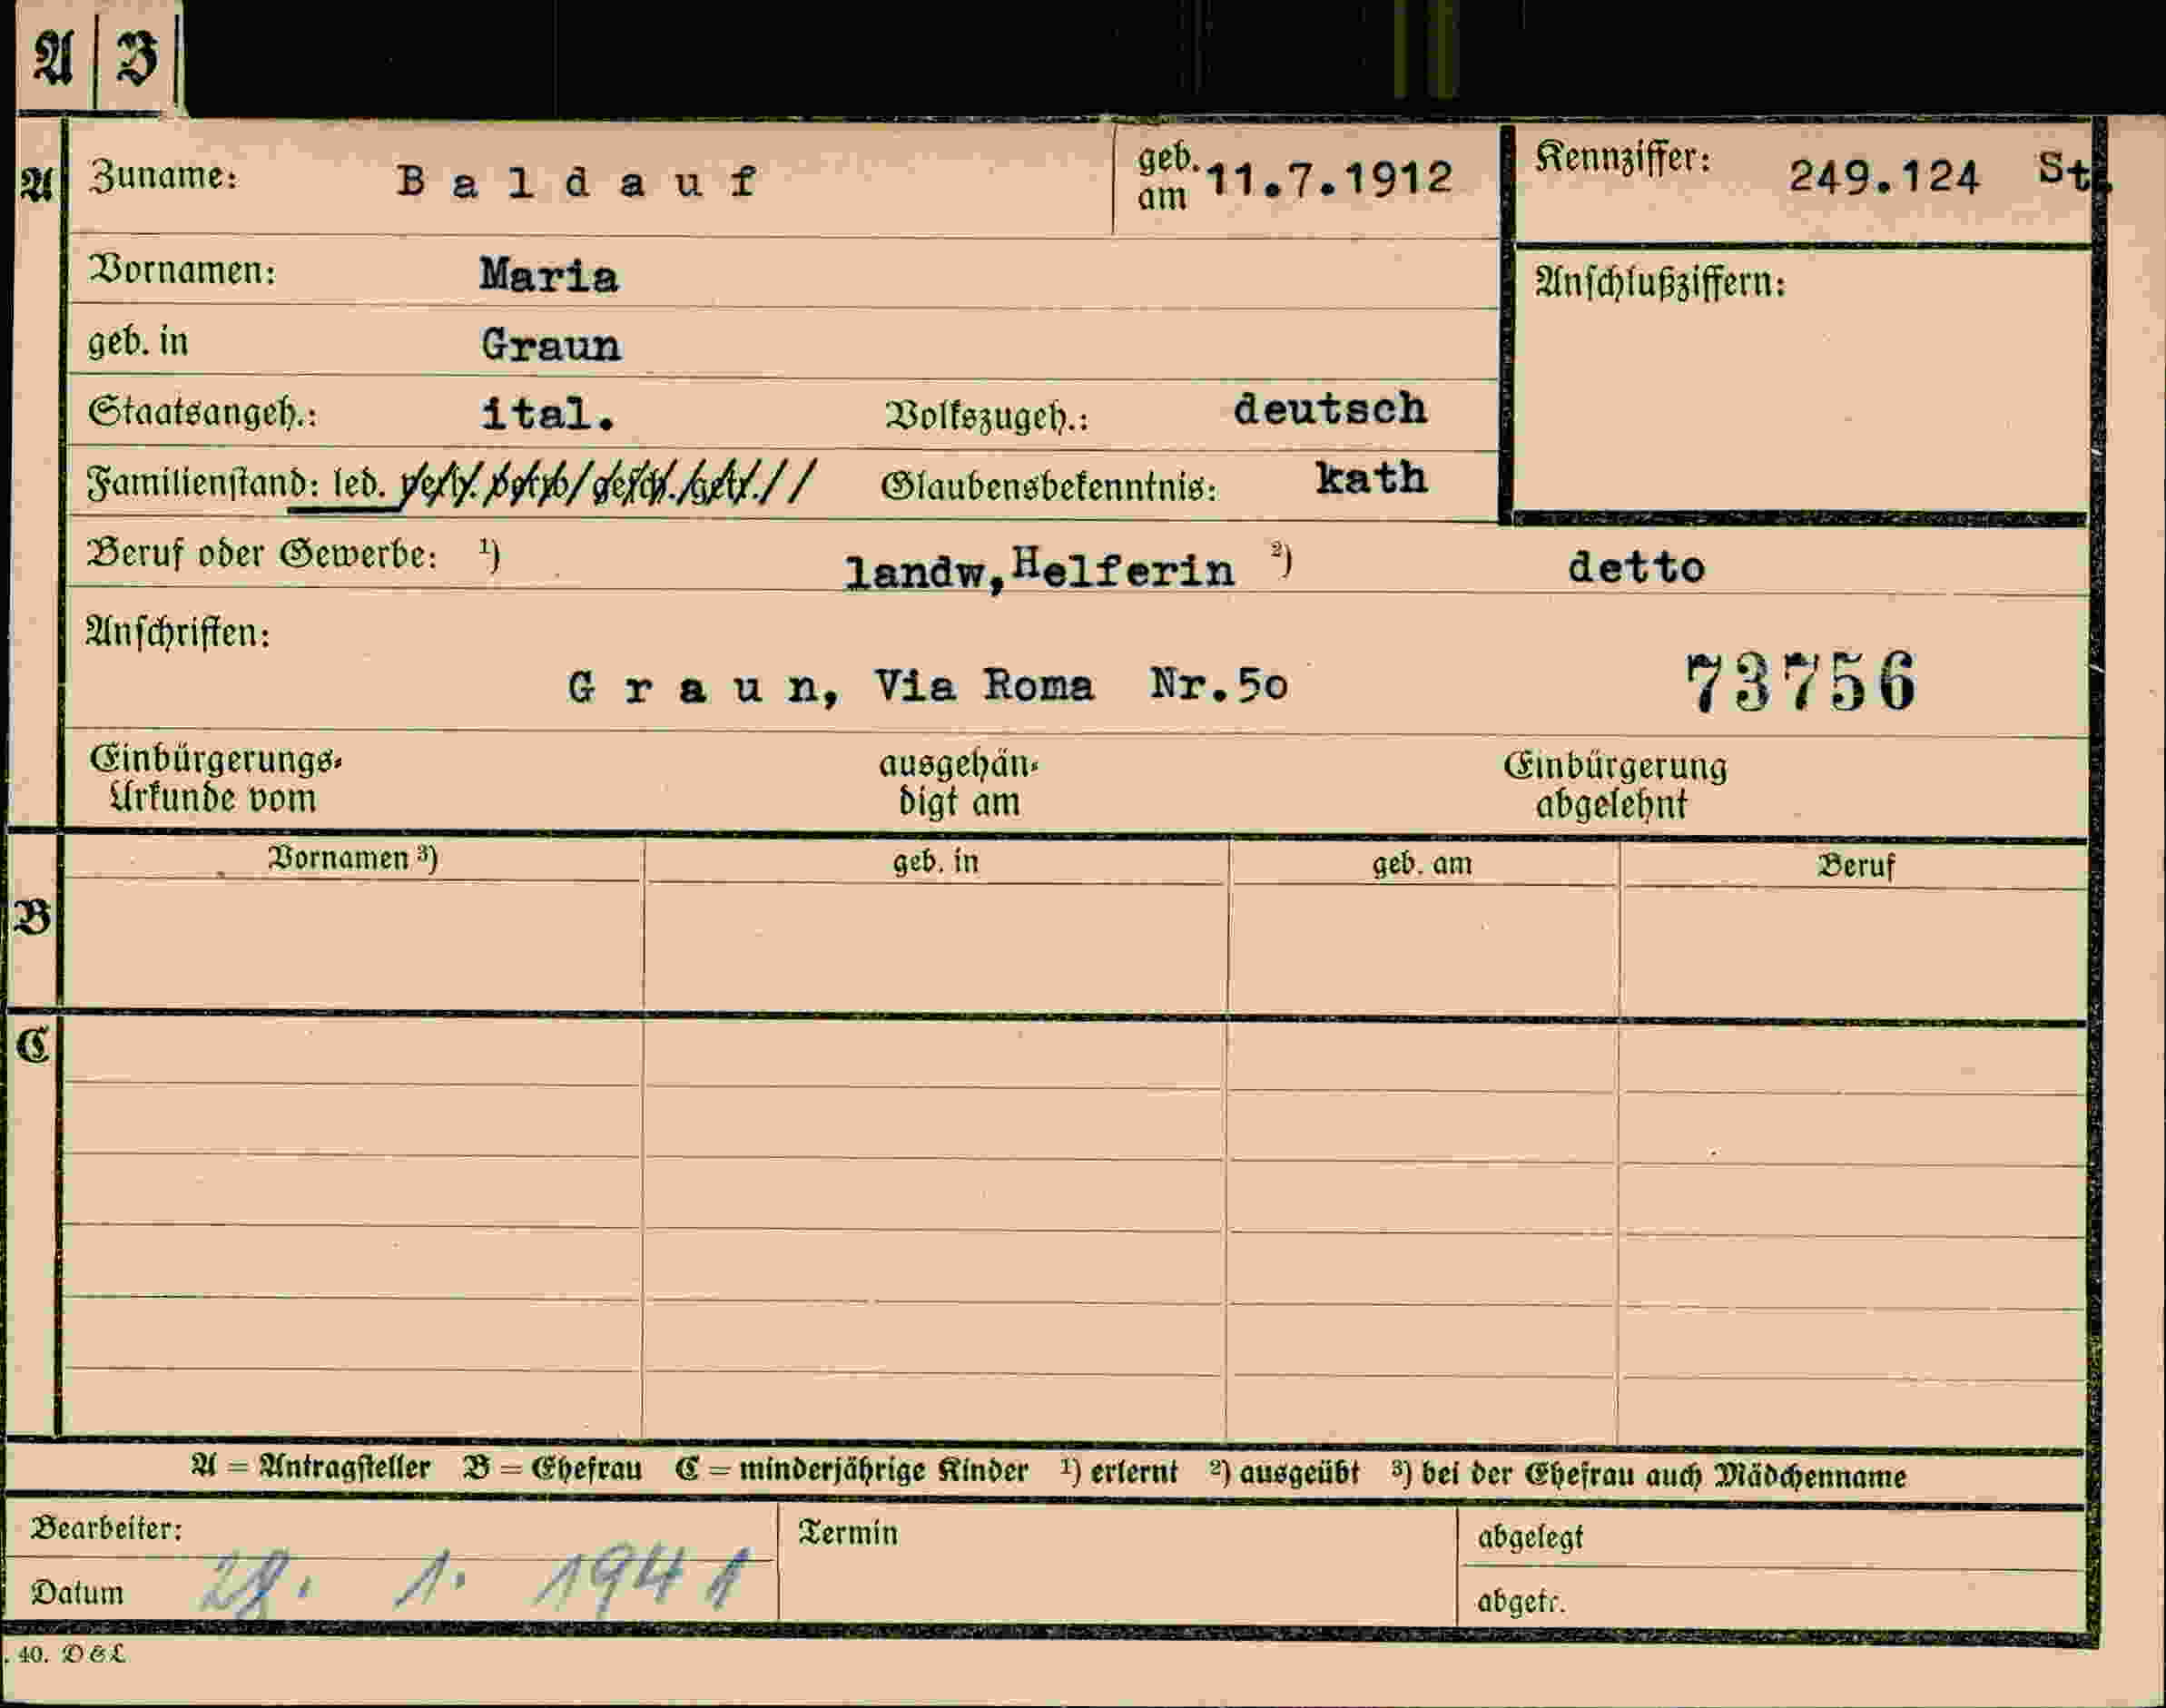 A B
A Zuname: Baldauf geb. am 11.7.1912 Kennziffer: 249.124 St.
Vornamen: Maria Anschlußziffern:
geb. in Graun
Staatsangeh.: ital. Volkszugeh.: deutsch
Familienstand: led. verh. verw. gesch. getr. Glaubensbekenntnis: kath
Beruf oder Gewerbe: ¹) landw,Helferin ²) detto
Anschriften:
Graun, Via Roma Nr.5o 73756
Einbürgerungs-Urkunde vom ausgehändigt am Einbürgerung abgelehnt
Vornamen ³) geb. in geb. am Beruf
B
C
A = Antragsteller B = Ehefrau C = minderjährige Kinder ¹) erlernt ²) ausgeübt ³) bei der Ehefrau auch Mädchenname
Bearbeiter: Termin abgelegt
Datum 1. 1941 abgetr.
. 40. D & L